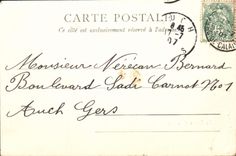 CARTE POSTALE
Ce côté est exclusivement réservé à l'adresse
AUCH
Monsieur Nérécan Bernard
Boulevard Sadi Carnot No 1
Auch Gers
CALAIS